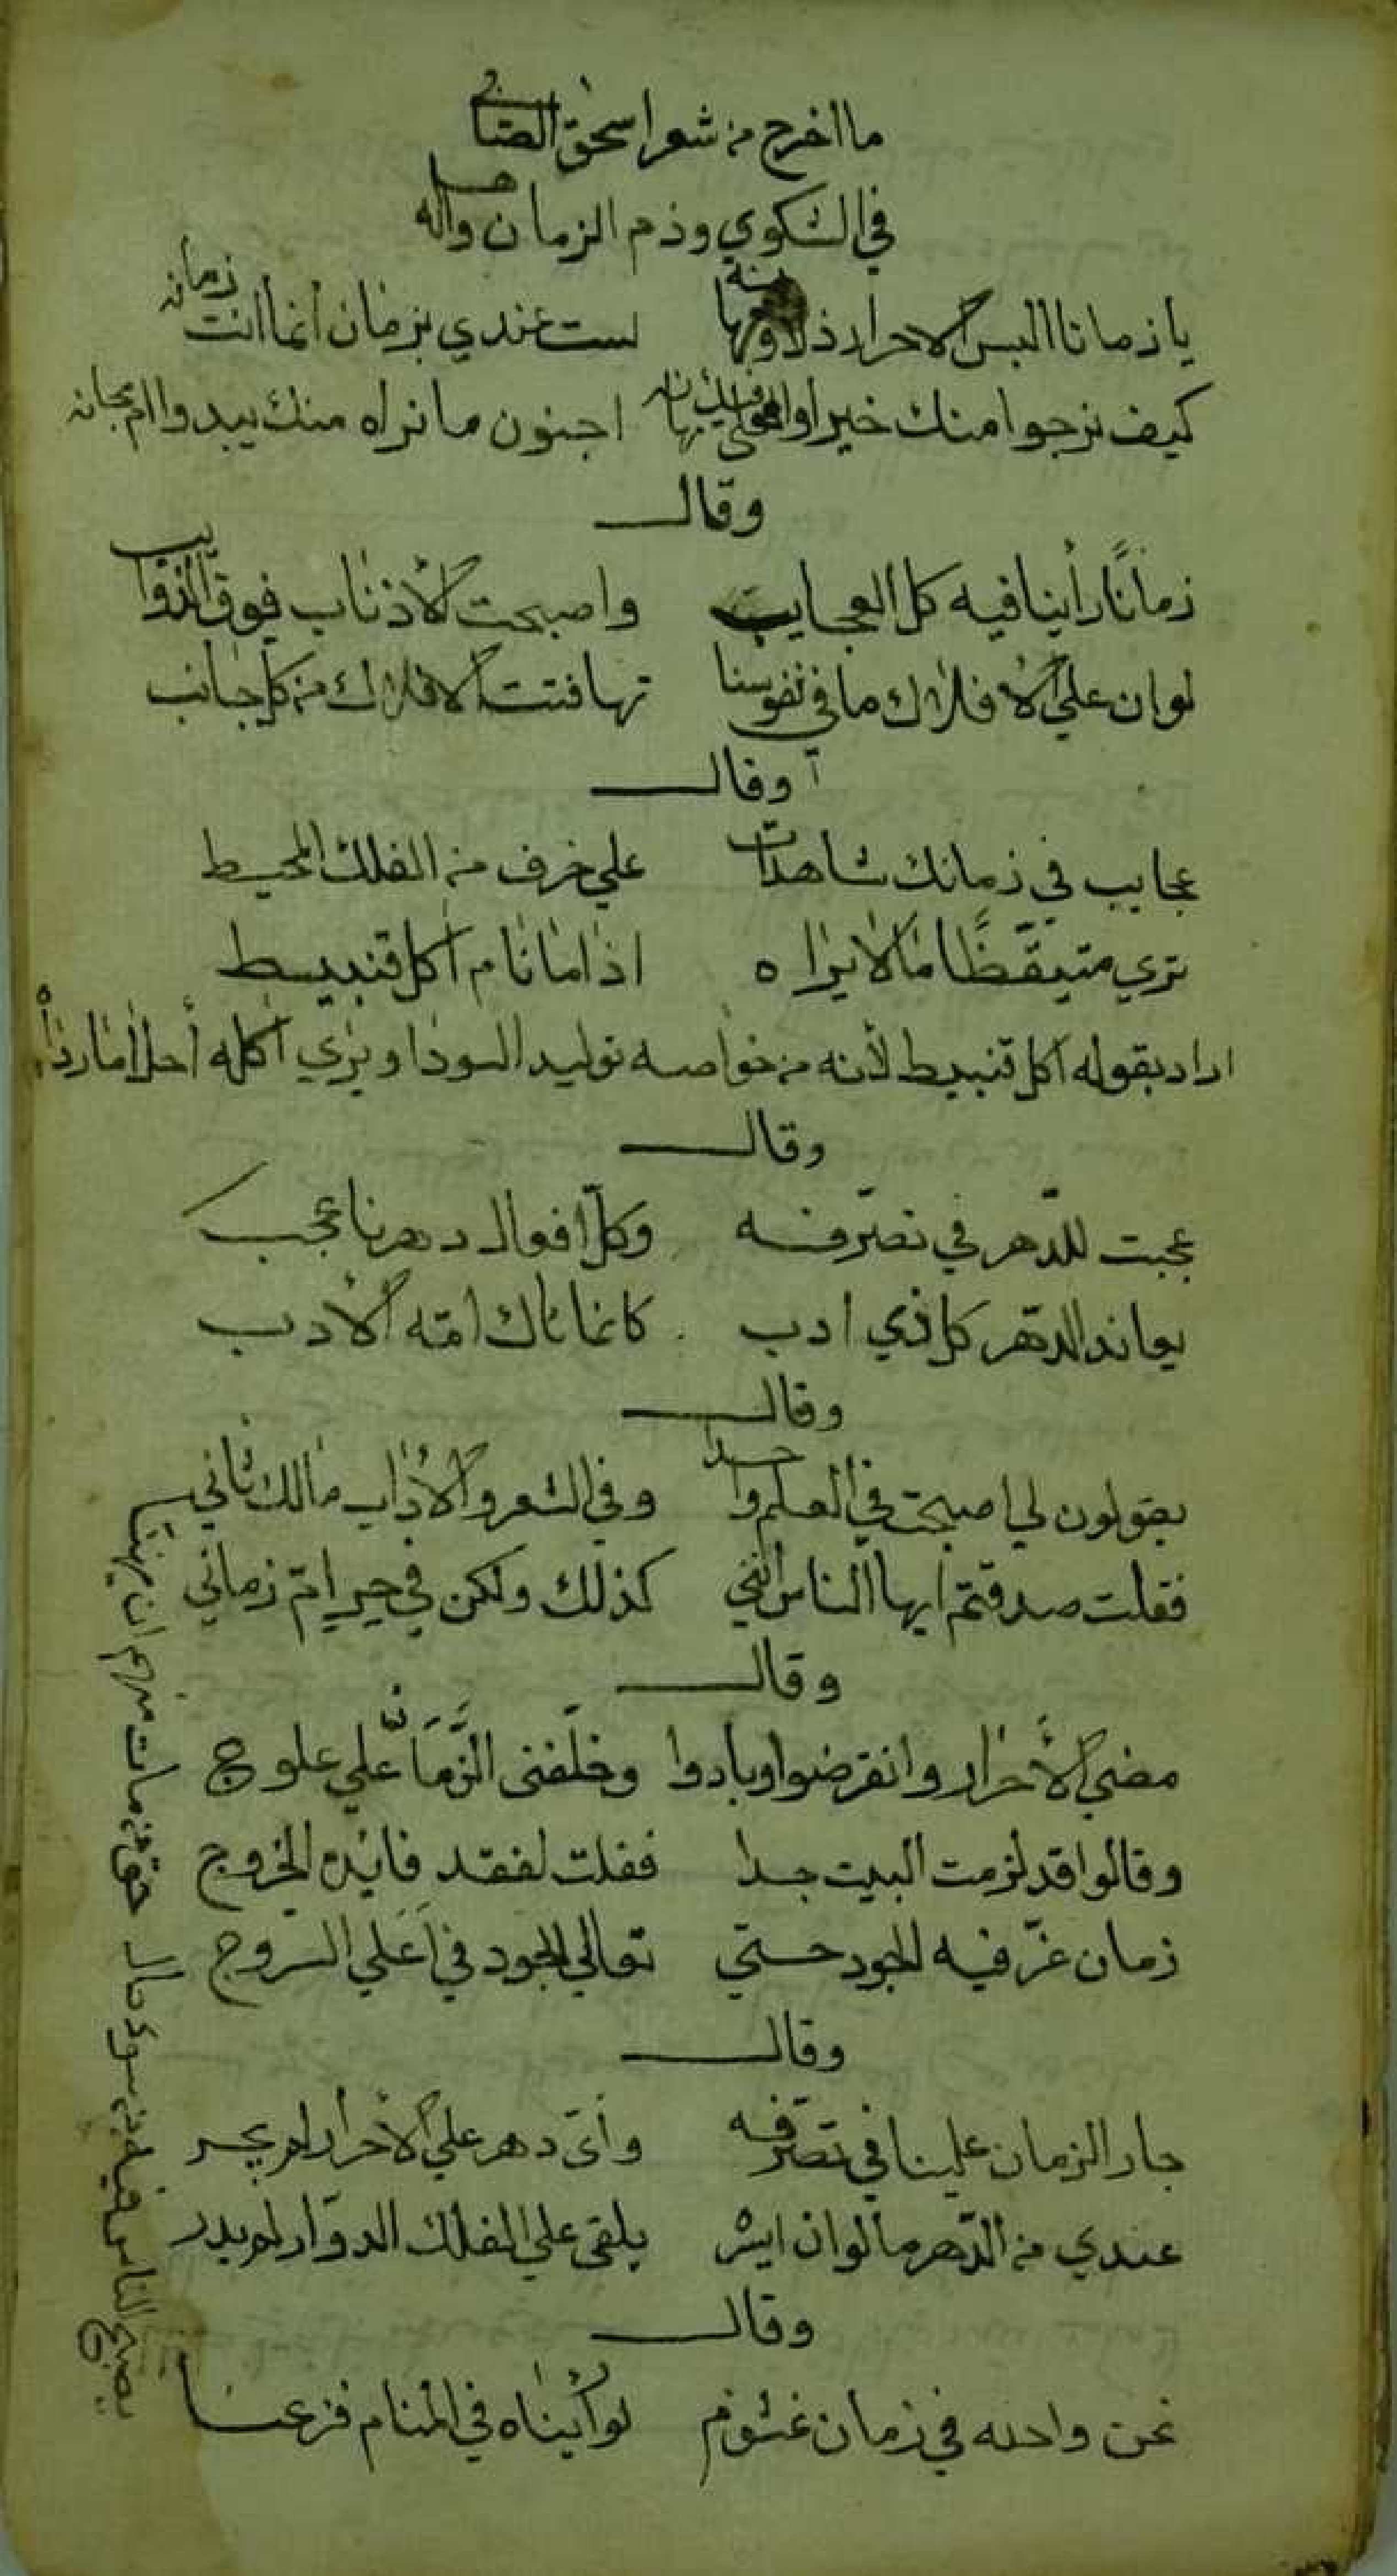 ما اخرج من شعر اسحق الصابي
في الشكوي وذم الزمان واهله
يا زمانا البس الاحرار ذلا ومهانه لست عندي بزمان انما انت زمانه
كيف نرجوا منك خيرا والعلي فيك مهانه اجنون ما نراه منك يبدوا ام مجانه
وقال
زمانًا راينا فيه كل العجايب واصبحت الأذناب فوق الذوايب
لو ان علي الافلاك ما في نفوسنا تهافتت الافلاك من كل جانب
وقال
عجايب في زمانك شاهدات علي خرف من الفلك المحيط
تري متيقظًا ما لا يراه اذا ما نام أكل قنبيط
اراد بقوله اكل قنبيط لأنه من خواصه توليد السودا ويري اكله أحلاما رديه
وقال
عجبت للدّهر في تصرّفه وكلّ افعال دهرنا عجب
يعاند الدهر كل ذي ادب كانما ناك امّه الأدب
وقال
يقولون لي اصبحت في العلم واحدا وفي الشعر والآداب مالك ثاني
فقلت صدقتم ايها الناس انني كذلك ولكن في حر ام زماني
وقال
مضي الأحرار وانقرضوا وبادوا وخلّفني الزّمان علي علوج
وقالوا قد لزمت البيت جدا فقلت لفقد فايدة الخروج
زمان عزّ فيه الجود حتي تعالي الجود في أعلي السروج
وقال
جار الزمان علينا في تصرّفه وأيّ دهر علي الأحرار لم يجر
عندي من الدّهر ما لو ان ايسره يلقي علي الفلك الدوّار لم يدر
وقال
نحن والله في زمان غشوم لو رأيناه في المنام فزعنا
يصبح الناس فيه من سوء حال حق من مات منهم ان يهنا